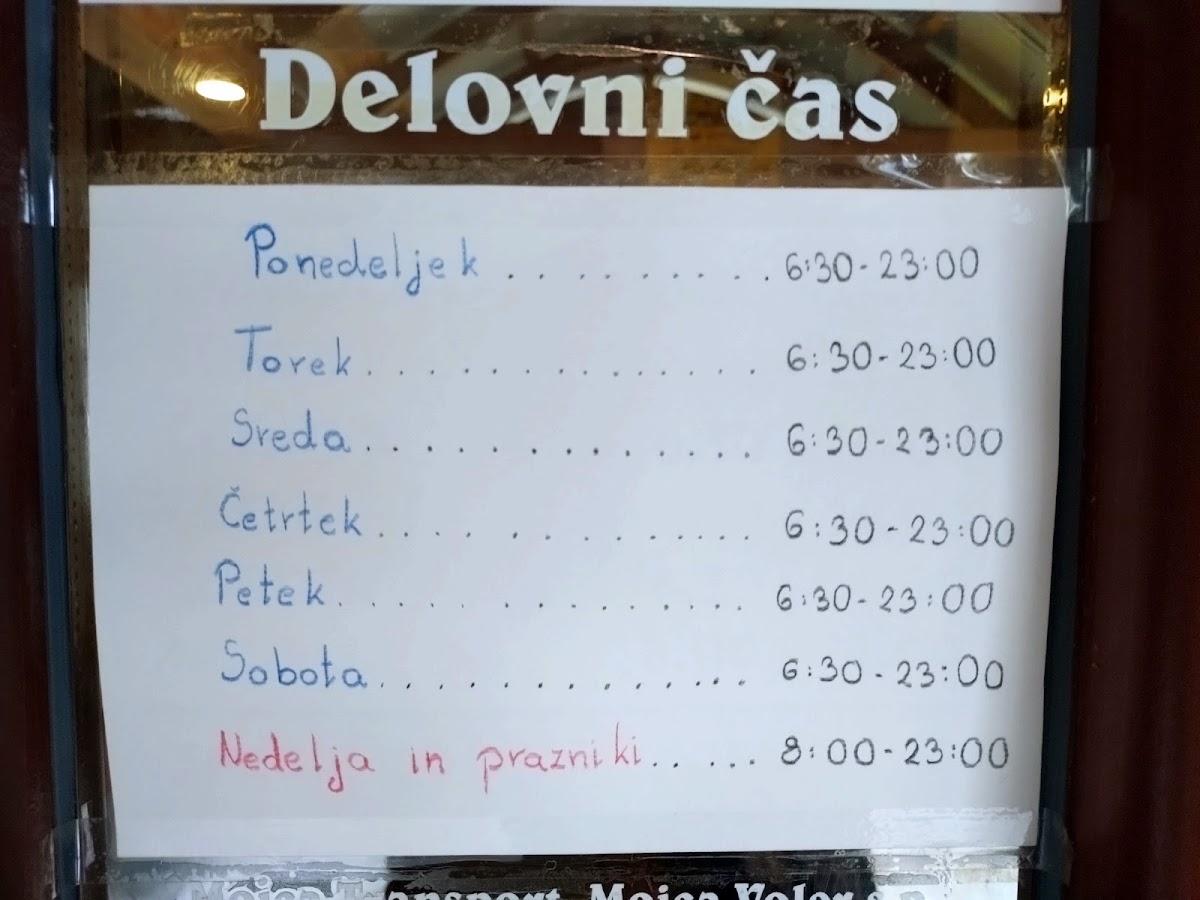 Delovni čas
Ponedeljek . . . . . . . . . . 6:30-23:00
Torek . . . . . . . . . . . . . . . 6:30-23:00
Sreda . . . . . . . . . . . . . . 6:30-23:00
Četrtek . . . . . . . . . . . . . . 6:30-23:00
Petek . . . . . . . . . . . . . . 6:30-23:00
Sobota . . . . . . . . . . . . . . 6:30-23:00
Nedelja in prazniki . . . . . . 8:00-23:00
Transport Mojca